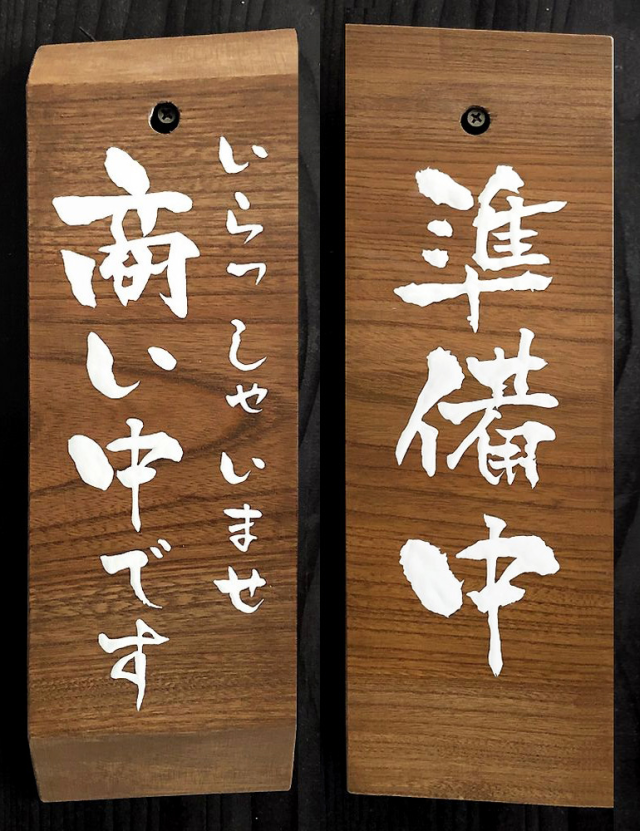 いらっしゃいませ
商い中です
準備中